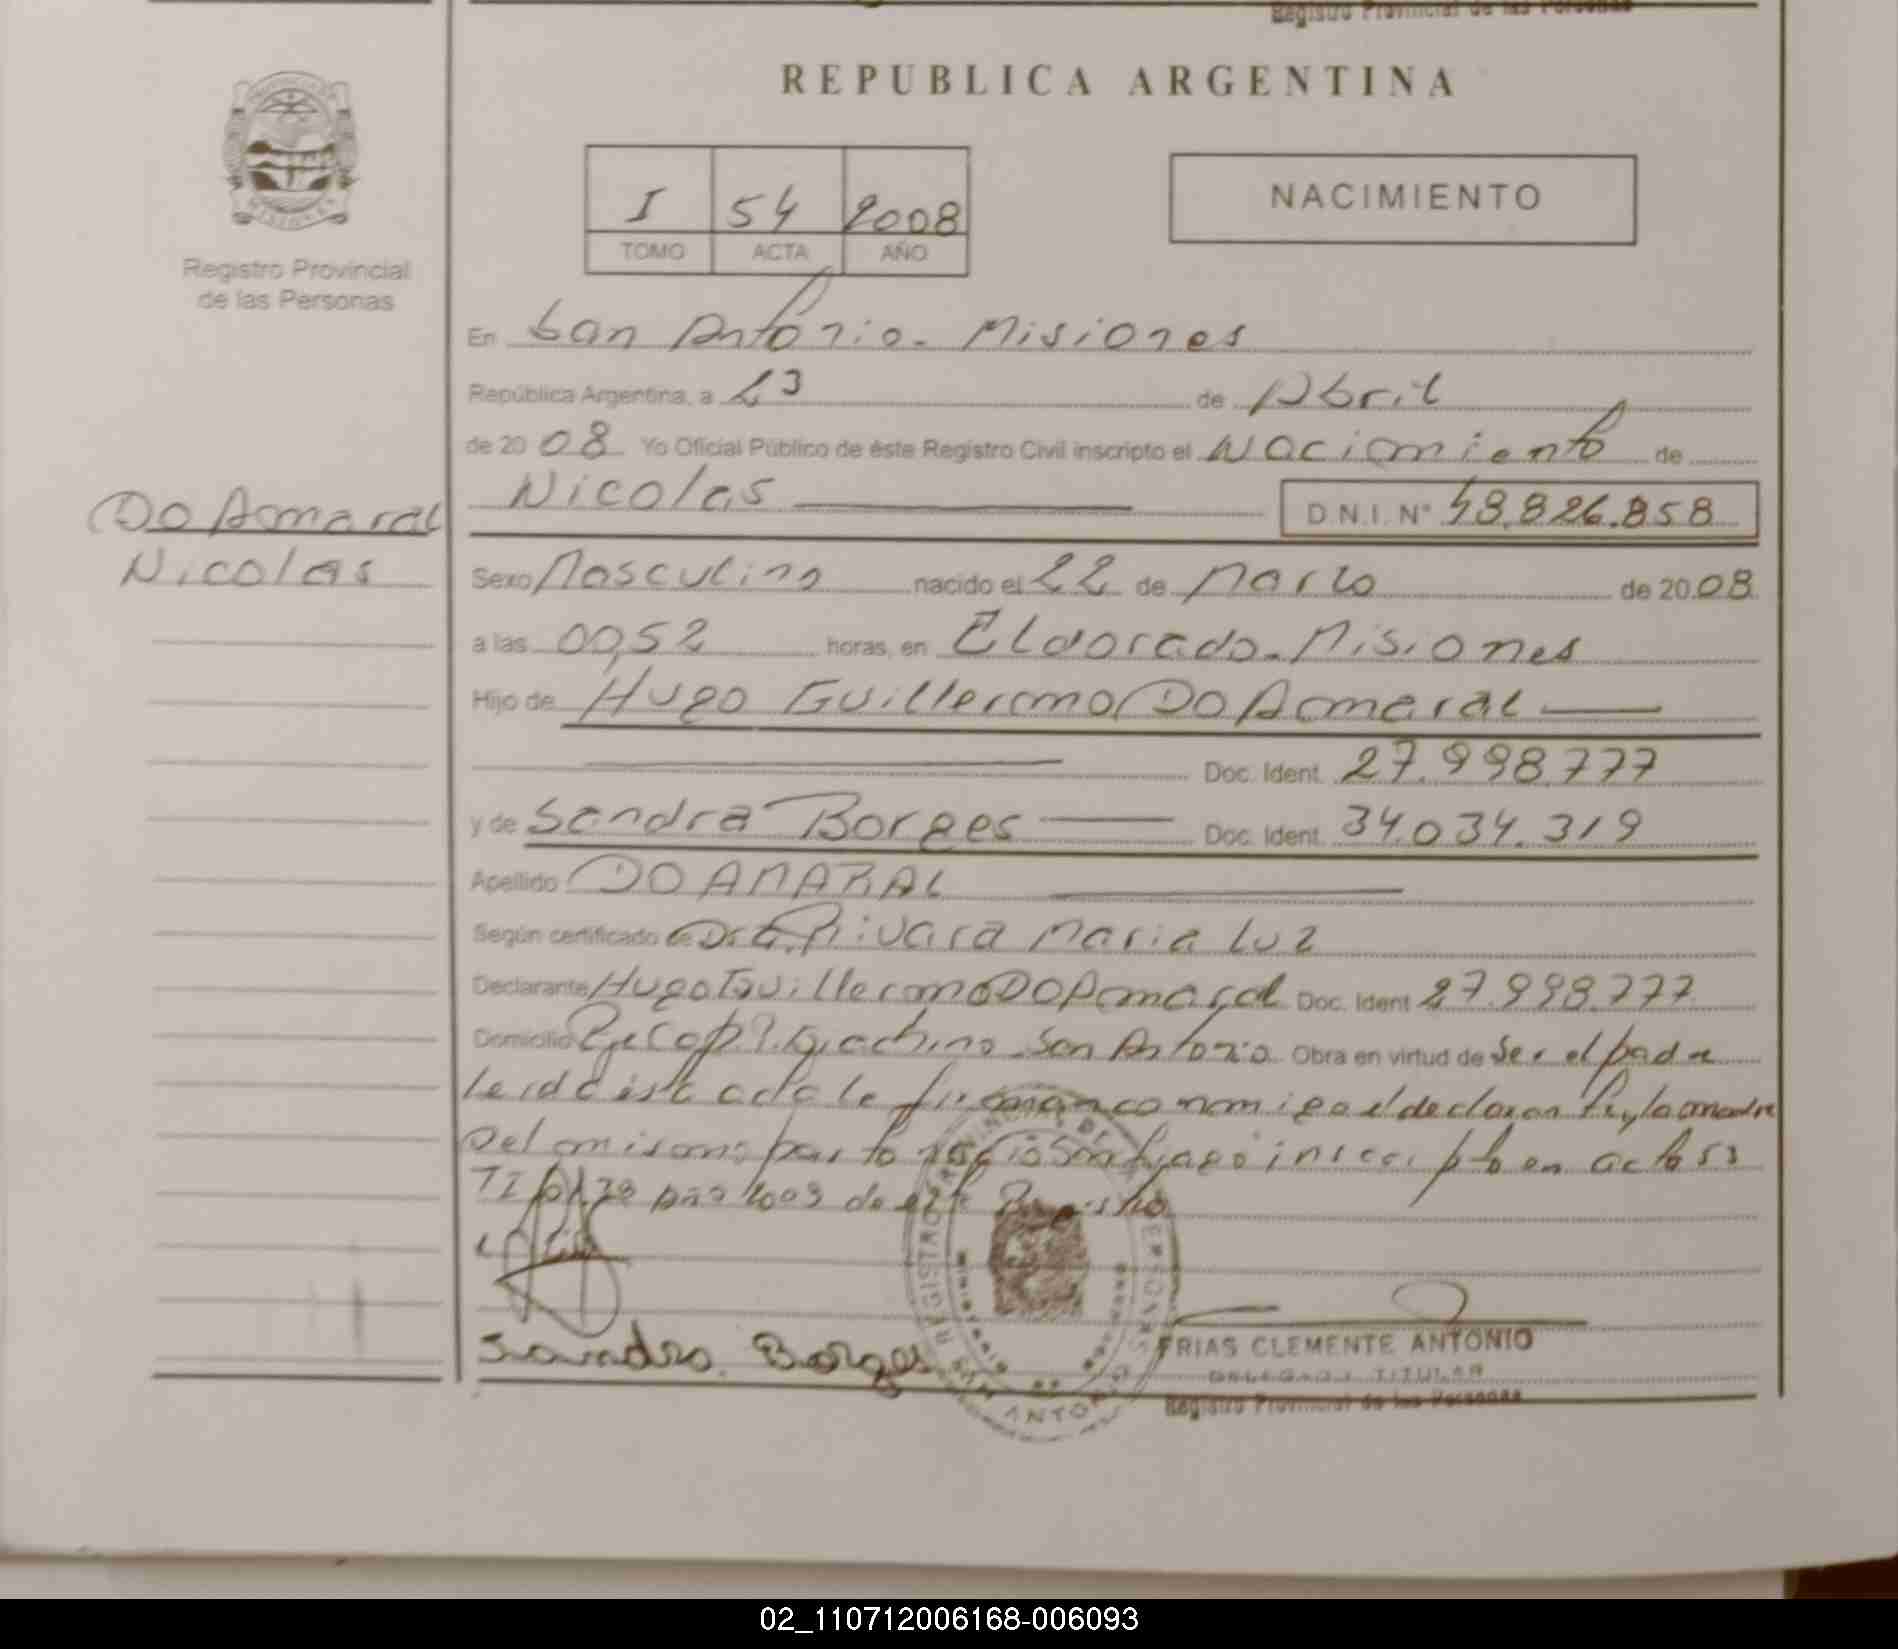 Registro Provincial de las Personas
REPUBLICA ARGENTINA
I 54 2008
TOMO ACTA AÑO
NACIMIENTO
Registro Provincial
de las Personas
En San Antonio - Misiones
República Argentina, a 23 de Abril
de 20 08 Yo Oficial Público de éste Registro Civil inscripto el Nacimiento de
Nicolas D.N.I. N° 48.826.858
Do Amaral
Nicolas
Sexo Masculino nacido el 22 de Marzo de 20 08
a las 00,52 horas, en Eldorado - Misiones
Hijo de Hugo Guillermo Do Amaral
Doc. Ident. 27.998.777
y de Sandra Borges Doc. Ident. 34.034.319
Apellido DO AMARAL
Según certificado de Dra. Rivara Maria Luz
Declarante Hugo Guillermo Do Amaral Doc. Ident 27.998.777
Domicilio San Antonio. Obra en virtud de Ser el padre
leida esta acta la firman conmigo el declarante y la madre
Del mismo parto nacio Santiago inscripto en acta 53
TI año 2008 de este Registro
Sandra Borges
REGISTRO PROVINCIAL DE LAS PERSONAS
SAN ANTONIO
FRIAS CLEMENTE ANTONIO
DELEGADO TITULAR
Registro Provincial de las Personas
02_110712006168-006093